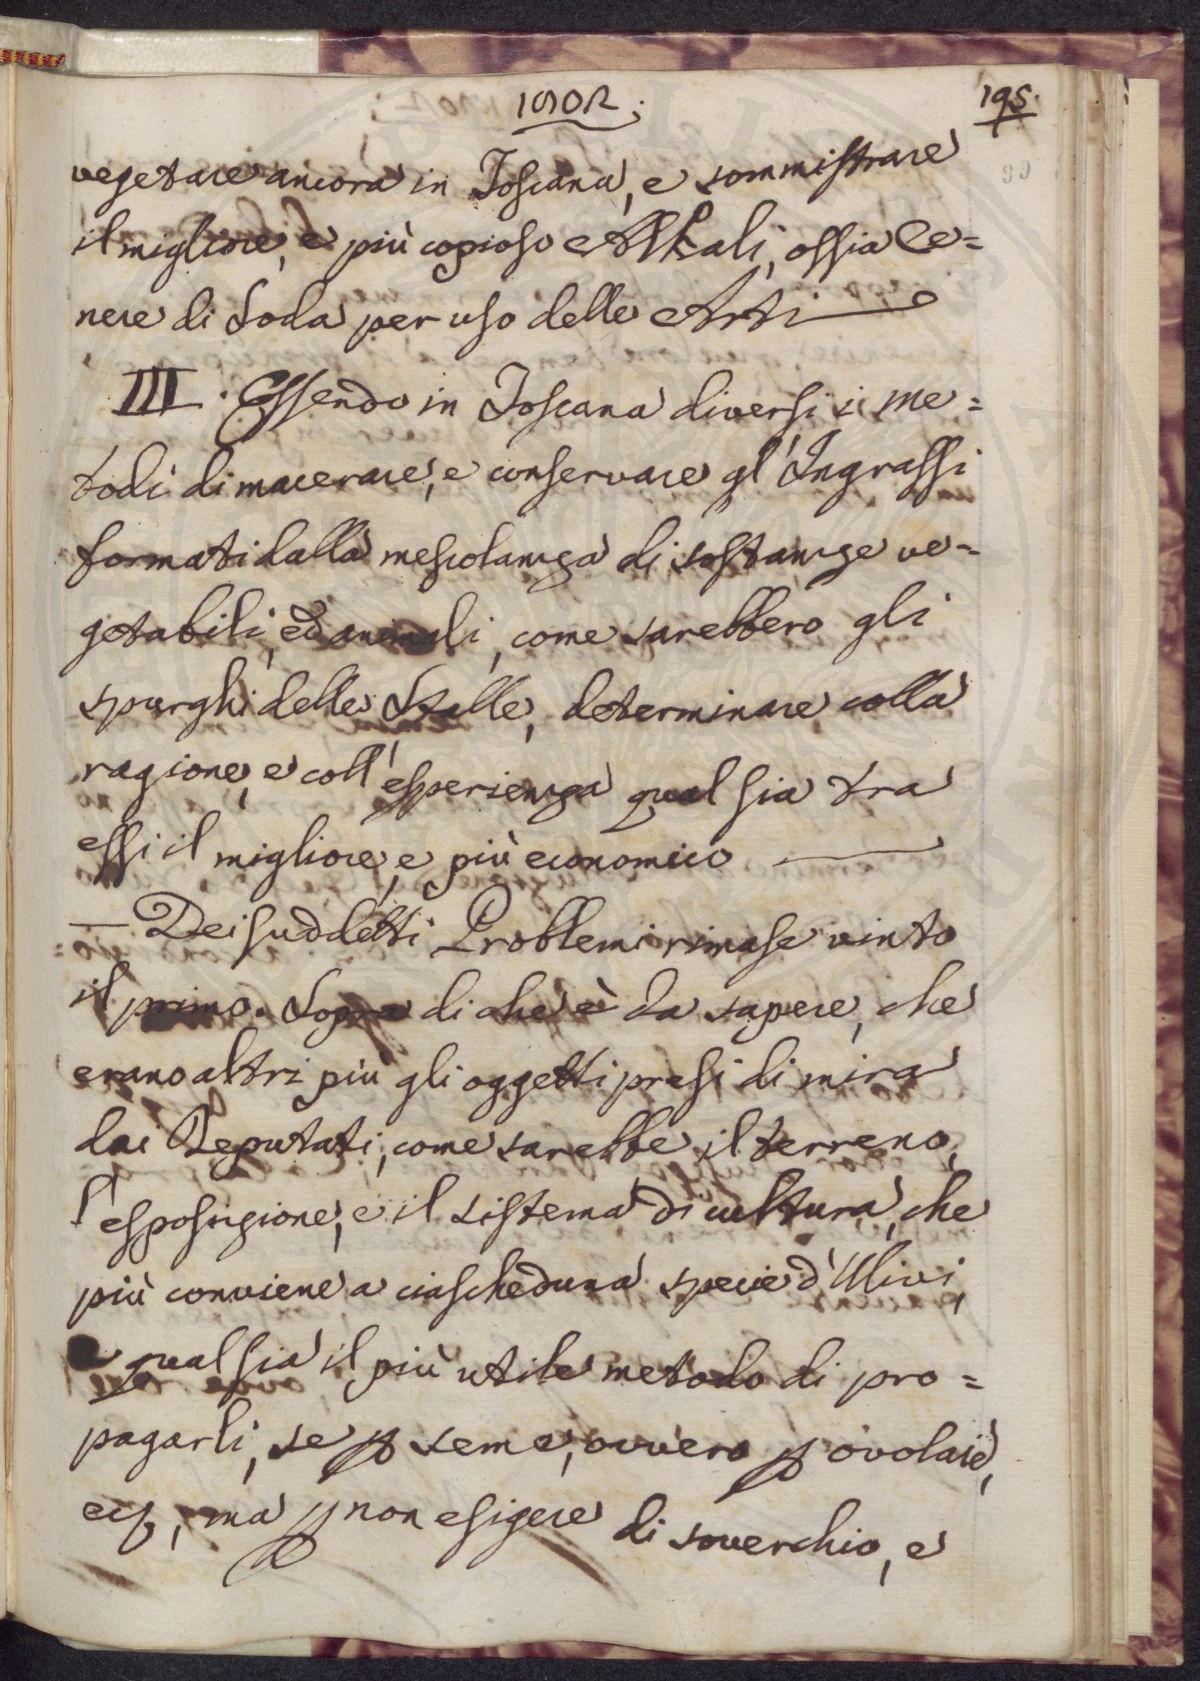 1802.
195.
99
vegetare ancora in Toscana, e sommistrare
il migliore, e più copioso Alkali, ossia Ce=
nere di Soda per uso delle Arti
III. Essendo in Toscana diversi i me=
todi di macerare, e conservare gl'Ingrassi
formati dalla mescolanza di sostanze ve=
getabili, ed animali, come sarebbero gli
spurghi delle Stalle, determinare colla
ragione, e coll'esperienza qual sia tra
essi il migliore, e più economico
— Dei suddetti Problemi rimase vinto
il primo. Sopra di che è da sapere, che
erano altri più gli oggetti presi di mira
dai Deputati, come sarebbe il terreno,
l'esposizione, e il sistema di cultura, che
più conviene a ciascheduna specie d'Ulivi,
e qual sia il più utile metodo di pro=
pagarli, se p seme, ovvero p ovolaie,
ec, ma p non esigere di soverchio, e